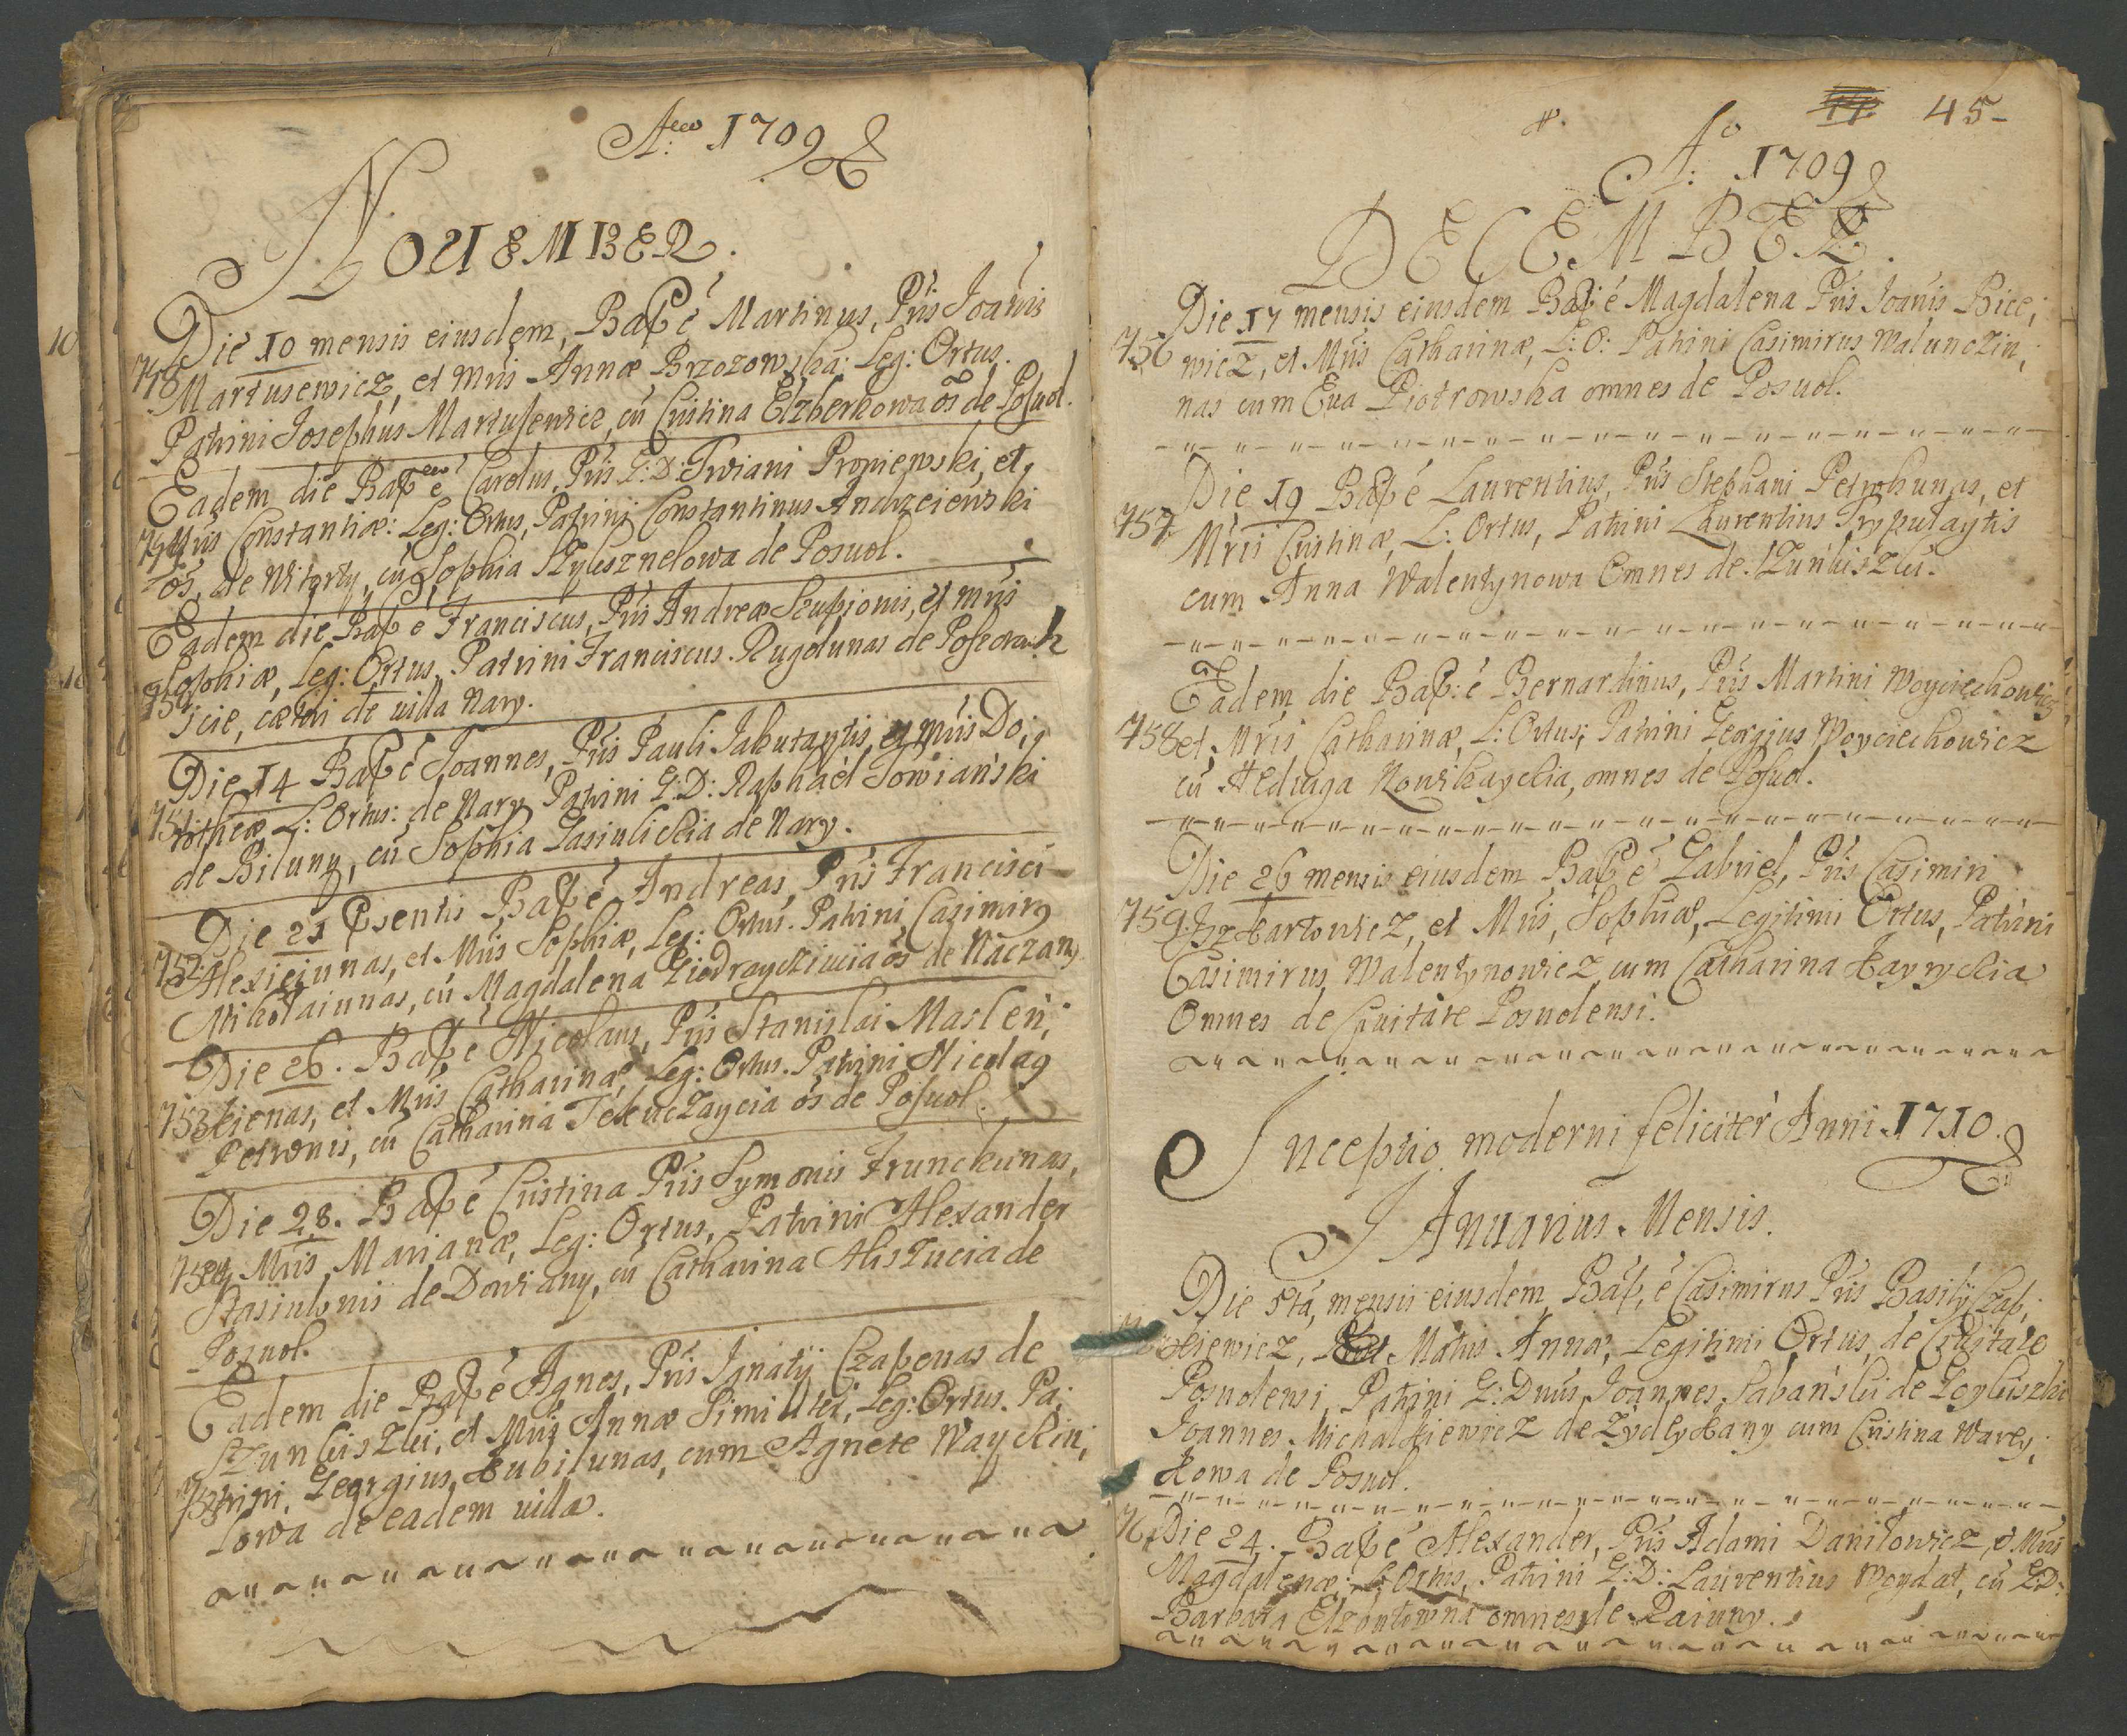 Aꝫ: 1709
NOUEMBER.
Die 10 mensis eiusdem, Bap̃ é Martinus, P̃ris Joanis
748 Martusewicz, et M̃ris Annæ Brzozowska: Leg: Ortus.
Patrini Josephus Martusewicz, cũ Cristina Elzberkowa os̃ de Posuol.
Eadem die Bap̃ é Carolus, P̃ris G: D: Trviani Propiewski, et
749 M̃ris Constantiæ: Leg: Ortus, Patrini Constantinus Andrzeiewski
os̃, de Witorty, cũ Sophia Szylesznelowa de Posuol.
Eadem die Bap̃ é Franciscus, P̃ris Andreæ Scupionis, et M̃ris
750 Sophiæ, Leg: Ortus, Patrini Franciscus Rugolunas de
scie, cætri de uilla Nary.
Die 14 Bap̃ é Joannes, P̃ris Pauli Jakutaytis, et M̃ris Do,
751 rotheæ, L: Ortus: de Nary Patrini G: D: Raphaël Towiański
de Biluny, cũ Sophia Gasiulickia de Nary.
Die 21 P̃sentis Bap̃ é Andreas, P̃ris Francisci
752 Alexieiunas, et M̃ris Sophiæ, Leg: Ortus. Patrini Casimirꝯ
Mikolaiunas, cũ Magdalena os̃ de Naczany
Die 26. Bap̃ é Nicolaus, P̃ris Stanislai Maslen,
753 kienas, et M̃ris Catharinæ, Leg: Ortus. Patrini Nicolaꝯ
Petronis, cũ Catharina Telenczaycia os̃ de Posuol.
Die 28. Bap̃ é Cristina P̃ris Symonis Trunckunas,
754 et M̃ris Marianæ, Leg: Ortus, Patrini Alexander
Stasiulonis de Dowiany, cũ Catharina de
Posuol.
Eadem die Bap̃ é Agnes, P̃ris Ignatij Czapenas de
Szunkiszki, et M̃ris Annæ Similiter, Leg: Ortus. Pa,
755 trini, Georgius Kubilunas, cum Agnete Wayckin,
lowa de eadem uilla.
45-
Aº: 1709
DECEMBER.
Die 17 mensis eiusdem Bap̃ é Magdalena P̃ris Joanis Bice,
756 wicz, et M̃ris Catharinæ, L: O: Patrini Casimirus Walunczin,
nas cum Eua Piotrowska omnes de Posuol.
Die 19 Bap̃ é Laurentius, P̃ris Stephani Petrokunas, et
757 M̃ris Cristinæ, L: Ortus, Patrini Laurentius Pryputaytis
cum Anna Walentynowa Omnes de Szunkiszki.
Eadem die Bap̃: é Bernardinus, P̃ris Martini Woyciechowicz
758 et M̃ris Catharinæ, L: Ortus, Patrini Georgius Woyciechowicz
cũ Heduiga Nowikayckia, omnes de Posuol.
Die 26 mensis eiusdem Bap̃ é Gabriel, P̃ris Casimiri
759. Bzkartowicz, et M̃ris, Sophiæ, Legitimi Ortus, Patrini
Casimirus Walentynowicz cum Catharina Kayryckia
Omnes de Ciuitate Posuolensi.
Inceptio moderni feliciter Anni 1710.
JAnuarius Mensis.
Die 5ta, mensis eiusdem, Bap̃, é Casimirus P̃ris Basilij Czap,
kiewicz, et Matris Annæ, Legitimi Ortus, de Ciuitate
Posuolensi, Patrini G: Dnũs Joannes Sabański de Leykiszki
Joannes Michałkiewicz de Zydlykany cum Cristina Warey,
kowa de Posuol.
76 Die 24. Bap̃ é Alexander, P̃ris Adami Daniłowicz, et M̃ris
Magdalenæ: L: Ortus, Patrini G: D: Laurentius Woydat, cũ G: D:
Barbara Elzbutowna omnes de Raiuny.